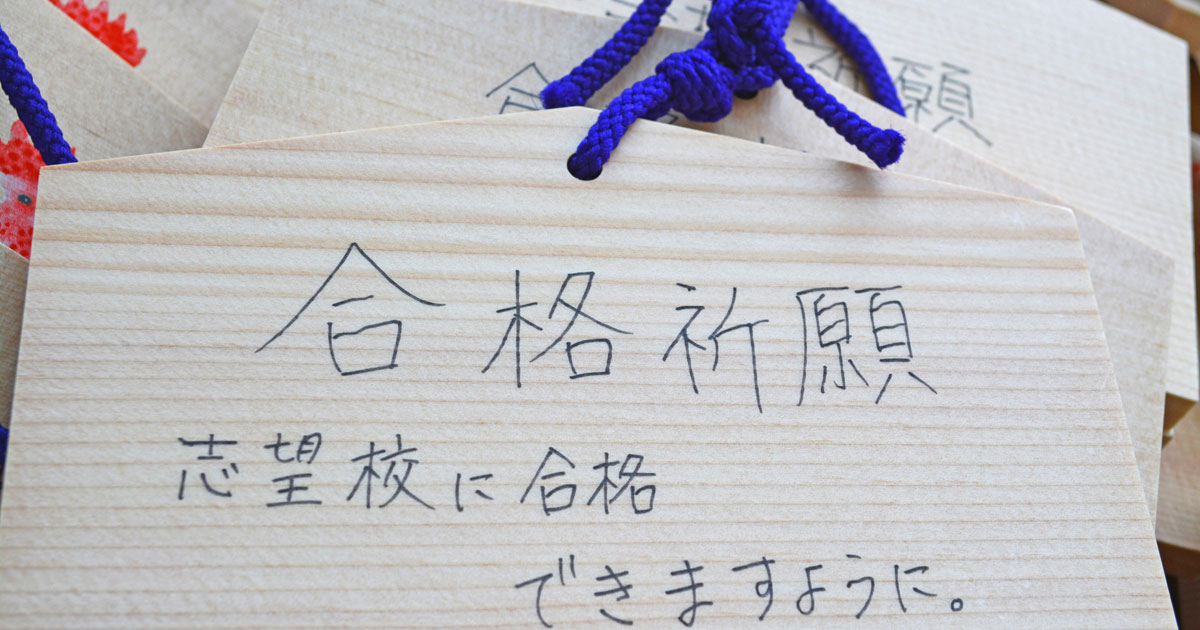 祈願
合格祈願
志望校に合格
できますように。